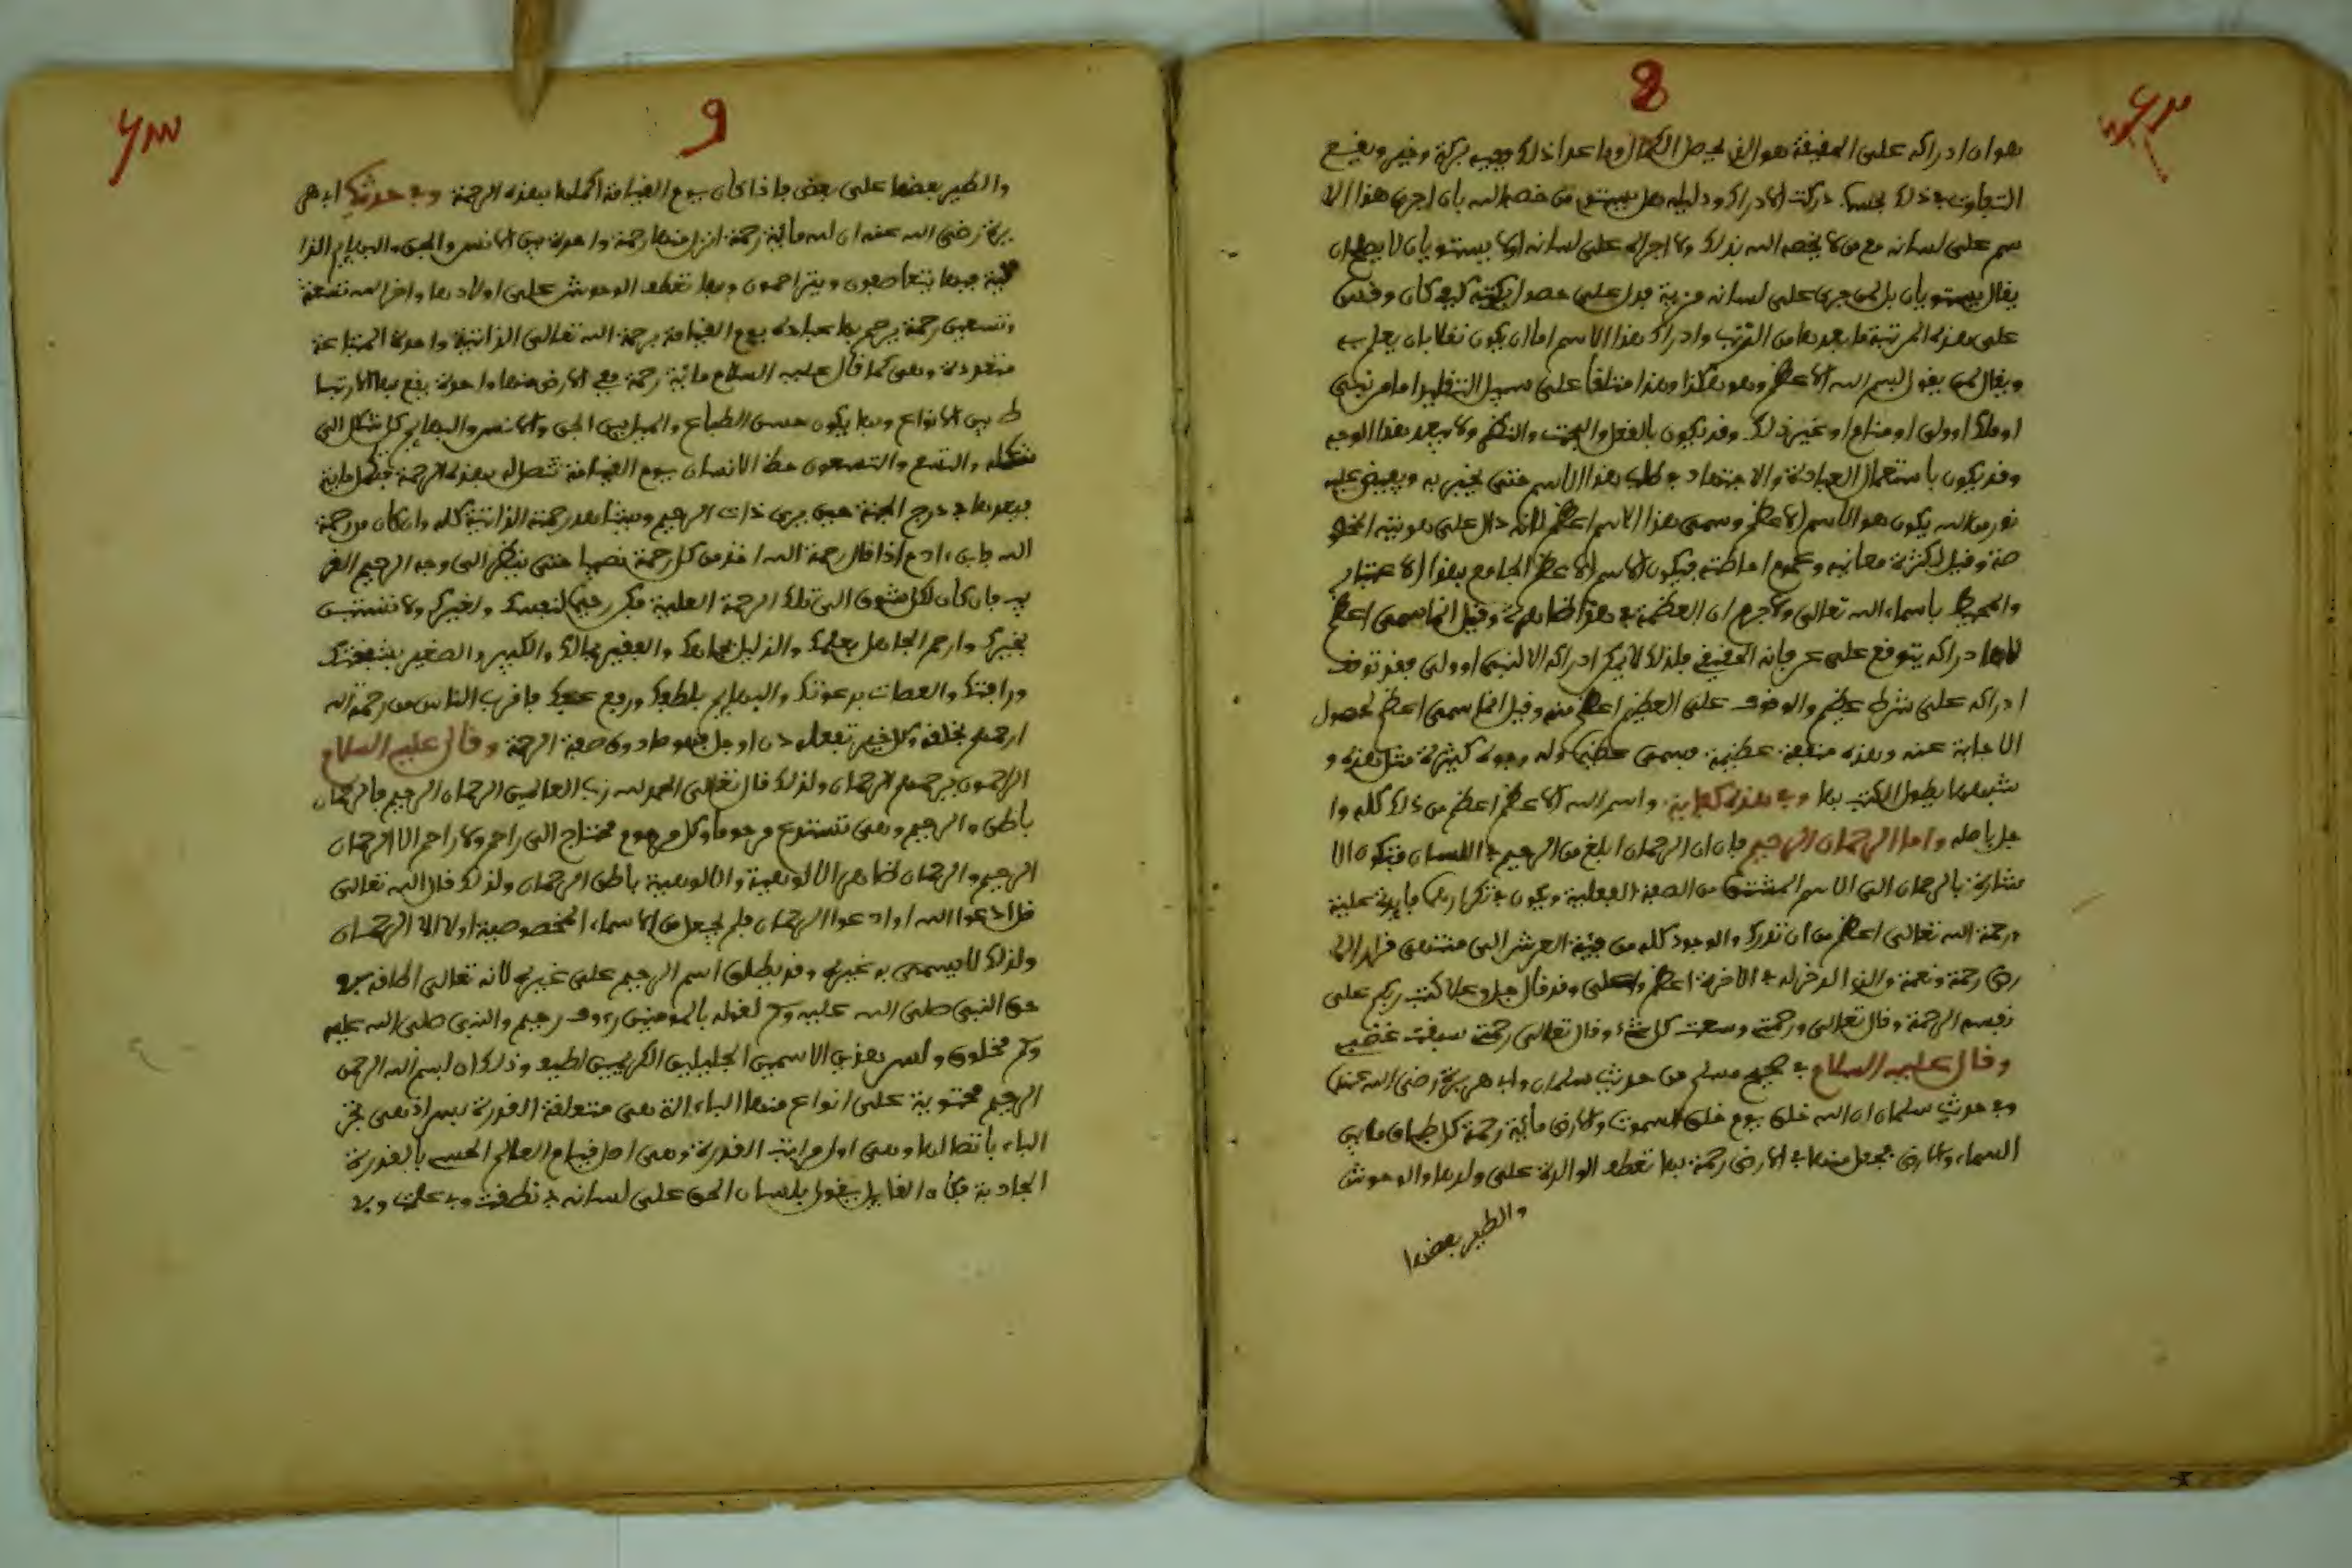 8
هو ان ادراكه على الحقيقة هو الذي يحصل الكمال وما عدا ذلك وجيه بركة وخير ويقع
التفاوت في ذلك بحسب دركت الادراك ودليله هل يستوي من خصه الله بان اجرى هذا الا
سم على لسانه مع من لا يخصه الله بذلك ولا اجراه على لسانه اولا يستويان لا يصح ان
يقال يستويان بل لمن جرى على لسانه مزية فدل على حصول بركته كيف كان وقس
على هذه المرتبة ما بعدها من الرتب وادراك هذا الاسم اما ان يكون نقلا بان يعلم به
ويقال لمن يقول بسم الله الاعظم وهو هكذا وهذا متلقا على سبيل التقليد اما من نبي
او ملك او ولي او منام او غير ذلك وقد يكون بالفعل والبحث والنظر ولا يبعد هذا الوجه
وقد يكون باستعمال العبادة والاجتهاد في طلب هذا الاسم حتى يخبر به ويفيض عليه
نور من الله يكون هو الاسم الاعظم وسمى هذا الاسم اعظم لانه دال على هويته المخصو
صة وقيل لكثرة معانيه وعموم احاطته فيكون الاسم الاعظم الجامع بهذا الاعتبار
والمحيط باسماء الله تعالى ولا جرم ان العظمة في هذا ظاهرة وقيل انما سمى اعظم
لان ادراكه يتوقف على عرفانه الحقيقي فلذلك لا يمكن ادراكه الا لنبي او ولي فقد توقف
ادراكه على شرط عظيم والوقوف على العظيم اعظم منه وقيل انما سمى اعظم لحصول
الاجابة عنه وهذه منفعة عظيمة فيسمى عظيما وله وجوه كثيرة مثل هذه و
شبهها يطول الكتب بها وفي هذه كفاية واسم الله الاعظم اعظم من ذلك كله وا
جل باصله واما الرحمان الرحيم فان ان الرحمان ابلغ من الرحيم في اللسان فتكون الا
شارة بالرحمان الى الاسم المشتق من الصفة الفعلية ويكون في تكرارهما فايدة علية
ورحمة الله تعالى اعظم من ان تدرك والوجود كله من قبة العرش الى منتهى قرار الا
رض رحمة ونعمة والذي ادخر له في الاخرة اعظم واعلى وقد قال جل وعلا كتب ربكم على
نفسه الرحمة وقال تعالى ورحمتي وسعت كل شيء وقال تعالى رحمتي سبقت غضبي
وقال عليه السلام في صحيح مسلم من حديث سلمان وابي هريرة رضي الله عنهما
وفي حديث سلمان ان الله خلق يوم خلق السموت والارض مائية رحمة كل طباق ما بين
السماء والارض فجعل منها في الارض رحمة بها تعطف الوالدة على ولدها والوحوش
والطير بعضها
9
والطير بعضها على بعض فاذا كان يوم القيامة اكملها بهذه الرحمة وفي حديث ابي هر
يرة رضي الله عنه ان لله مائية رحمة انزل منها رحمة واحدة بين الانس والجن والبهايم الذا
فبها يتعاطفون ويتراحمون وبها تعطف الوحوش على اولادها واخر الله تسعة
وتسعين رحمة يرحم بها عباده يوم القيامة برحمة الله تعالى الذاتية واحدة
وهي كما قال عليه السلام مائية رحمة في الارض منها واحدة يقع بها الارتبا
ط بين الانواع وبها يكون حسن الطباع والميل بين الجن والانس والبهايم كل شكل الى
شكله والتسع والتسعون حظ الانسان يوم القيامة تتصل بهذه الرحمة فتكمل ماية
فيعدها في درج الجنة حين يرى ذات الرحيم ويشاهد رحمته الذاتية كله وان كان من رحمة
الله فابن ادم اذا قال رحمة الله اخذ من كل رحمة نصيبا حتى ينظر الى وجه الرحيم القر
يب فان كان لك تشوق الى تلك الرحمة العلية فكن رحيما لنفسك ولغيرك ولا تستبد
بخيرك وارحم الجاهل بعلمك والذليل بجاهك والفقير بمالك والكبير والصغير بشفقتك
ورافتك والعصات بدعوتك والبهايم بلطفك ورفع غضبك فاقرب الناس من رحمة الله
ارحمهم بخلقه وكل خير تفعله دق او جل فهو صادر عن صفة الرحمة وقال عليه السلام
الراحمون يرحمهم الرحمان ولذلك قال تعالى الحمد لله رب العالمين الرحمان الرحيم فالرحمان
باطن والرحيم وهي تستدع مرحوما وكل مرحوم محتاج الى راحم ولا راحم الا الرحمان
الرحيم والرحمان ظاهر الالوهية والالوهية باطن الرحمان ولذلك قال الله تعالى
قل ادعوا الله او ادعوا الرحمان فلم يجعل من الاسماء المخصوصية اولا الا الرحمان
ولذلك لا يسمى به غيره وقد يطلق اسم الرحيم على غيره لانه تعالى اطلقه في
حق النبي صلى الله عليه وسلم لقوله بالمومنين رءوف رحيم والنبي صلى الله عليه
وسلم مخلوق ولسر هذين الاسمين الجليلين الكريمين لطيف وذلك ان بسم الله الرحمن
الرحيم محتوية على انواع منها الباء التي هي متعلقة القدرة بسر اذ هي تجر
الباء باتصالها وهي اول مراتب القدرة وهي اصل قيام العالم الحسي بالقدرة
الجاذبة فكان القايل يقول بلسان الحق على لسانه بي نطقت وبي علمت وبي